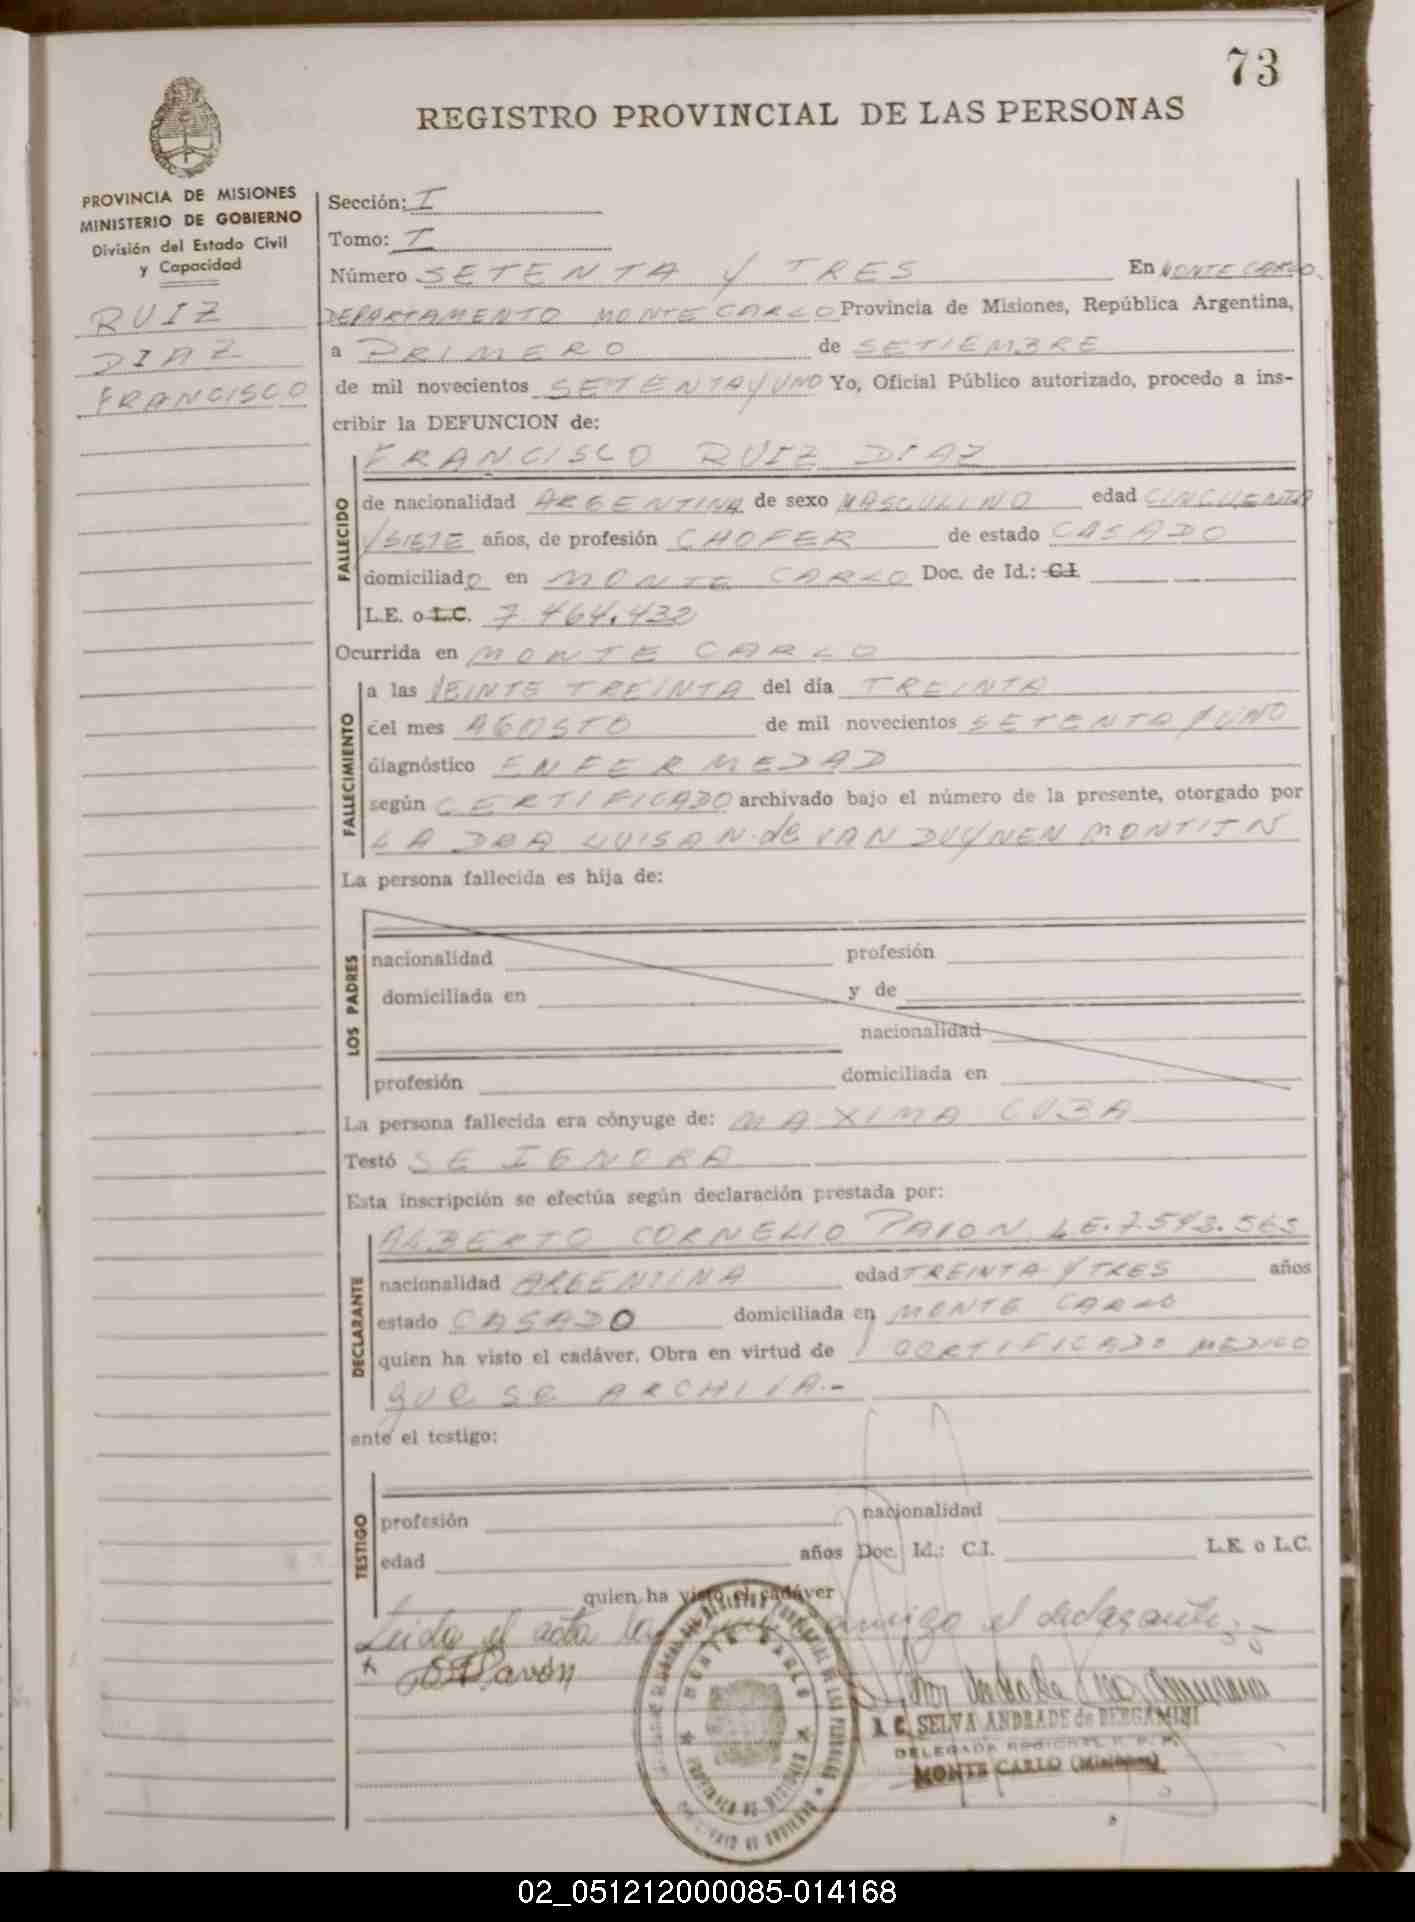 73
REGISTRO PROVINCIAL DE LAS PERSONAS
PROVINCIA DE MISIONES
MINISTERIO DE GOBIERNO
División del Estado Civil
y Capacidad
RUIZ
DIAZ
FRANCISCO
Sección: I
Tomo: I
Número SETENTA Y TRES En MONTE CARLO
DEPARTAMENTO MONTE CARLO Provincia de Misiones, República Argentina,
a PRIMERO de SETIEMBRE
de mil novecientos SETENTA Y UNO Yo, Oficial Público autorizado, procedo a ins-
cribir la DEFUNCION de:
FRANCISCO RUIZ DIAZ
FALLECIDO
de nacionalidad ARGENTINA de sexo MASCULINO edad CINCUENTA
Y SIETE años, de profesión CHOFER de estado CASADO
domiciliado en MONTE CARLO Doc. de Id.: C.I.
L.E. o L.C. 7.464.432
Ocurrida en MONTE CARLO
FALLECIMIENTO
a las VEINTE TREINTA del día TREINTA
del mes AGOSTO de mil novecientos SETENTA Y UNO
diagnóstico ENFERMEDAD
según CERTIFICADO archivado bajo el número de la presente, otorgado por
LA DRA LUISA N. de VAN DUYNEN MONTIJN
La persona fallecida es hija de:
LOS PADRES
nacionalidad profesión
domiciliada en y de
nacionalidad
profesión domiciliada en
La persona fallecida era cónyuge de: MAXIMA CUBA
Testó SE IGNORA
Esta inscripción se efectúa según declaración prestada por:
DECLARANTE
ALBERTO CORNELIO PAVON LE. 7.593.563
nacionalidad ARGENTINA edad TREINTA Y TRES años
estado CASADO domiciliada en MONTE CARLO
quien ha visto el cadáver. Obra en virtud de CERTIFICADO MEDICO
QUE SE ARCHIVA.-
ante el testigo:
TESTIGO
profesión nacionalidad
edad años Doc. Id.: C.I. L.E. o L.C.
quien ha visto el cadáver
Leida el acta la conmigo el declarante.
Pavón
SELVA ANDRADE de BERGAMINI
DELEGADA REGIONAL R. P. P.
MONTE CARLO (Misiones)
MONTE CARLO
PROVINCIA DE MISIONES
02_051212000085-014168